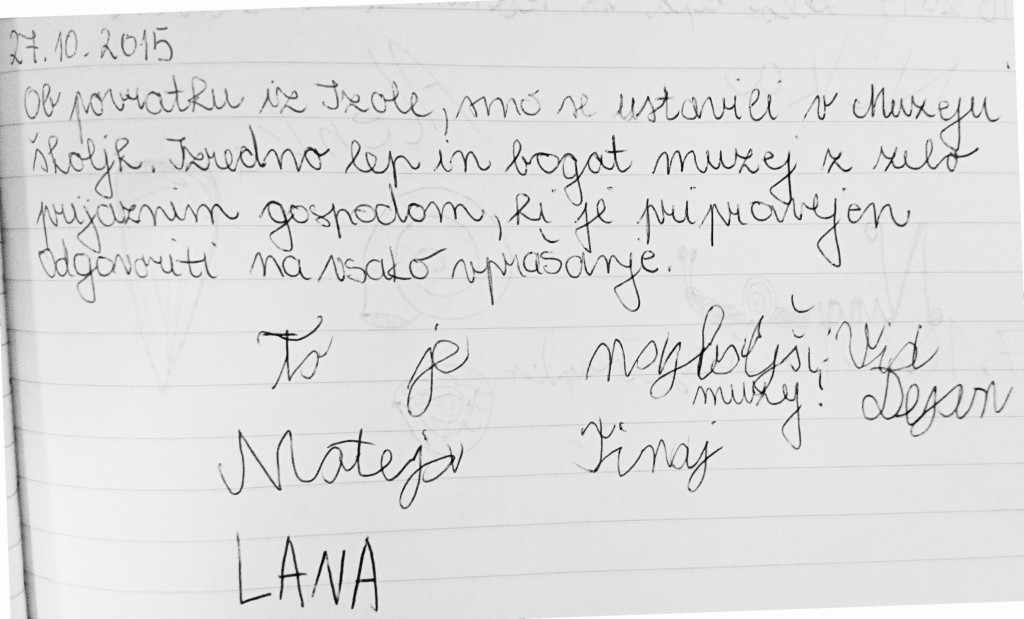 27.10.2015
Ob povratku iz Izole, smo se ustavili v Muzeju
školjk. Izredno lep in bogat muzej z zelo
prijaznim gospodom, ki je pripravljen
odgovoriti na vsako vprašanje.
To je najboljši Vid
muzej! Dejan
Mateja
LANA